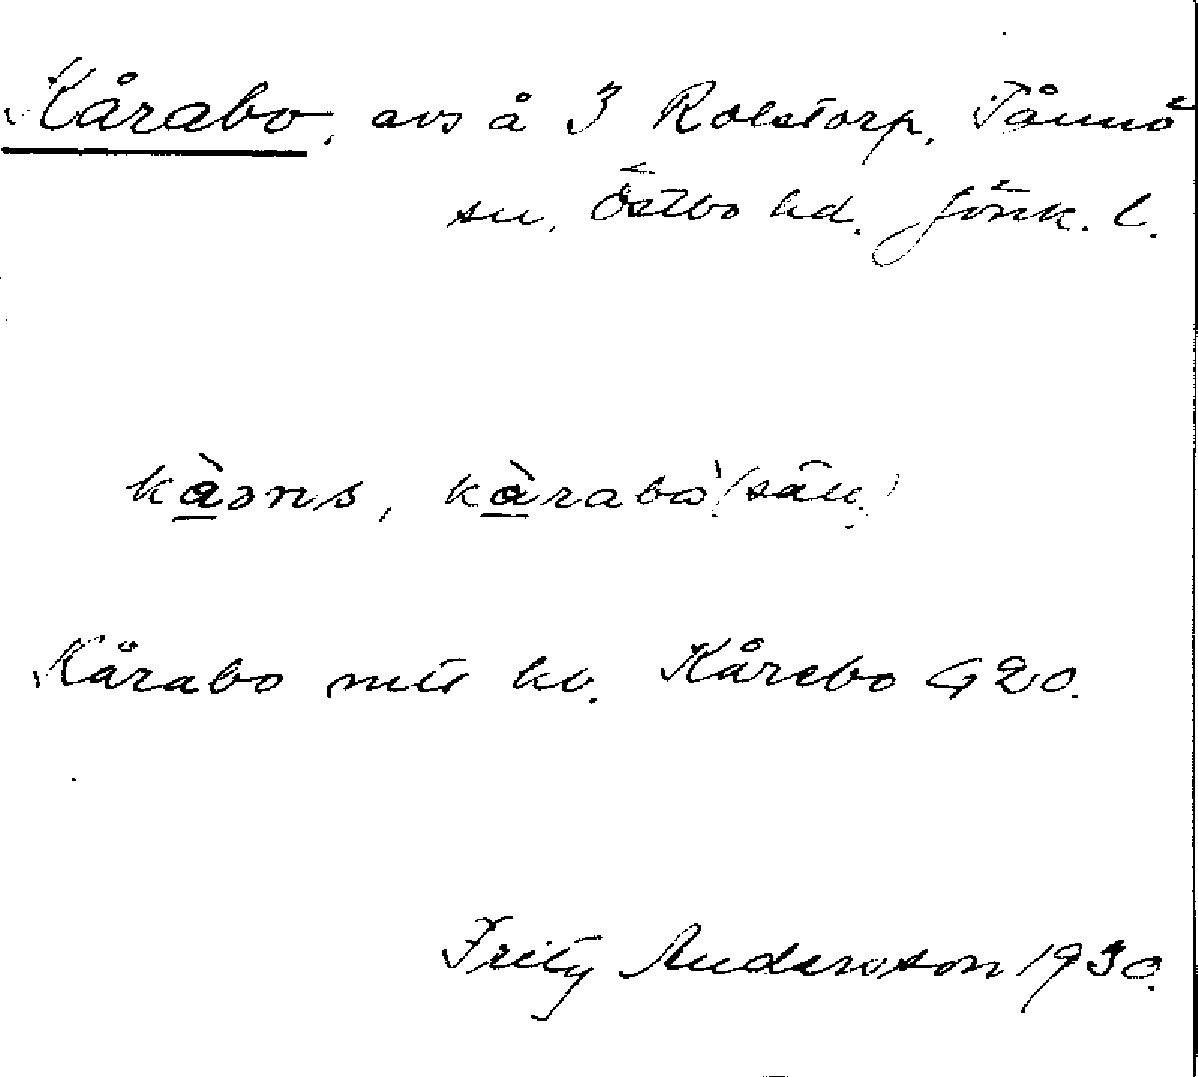 Kårabo, avs å 3 Rolstorp, Tånnö
sn, Östbo hd. Jönk. l.
kårabo (sän.)
Kårabo mtl kv. Kårebo G 20.
Fritz Anderson 1930.